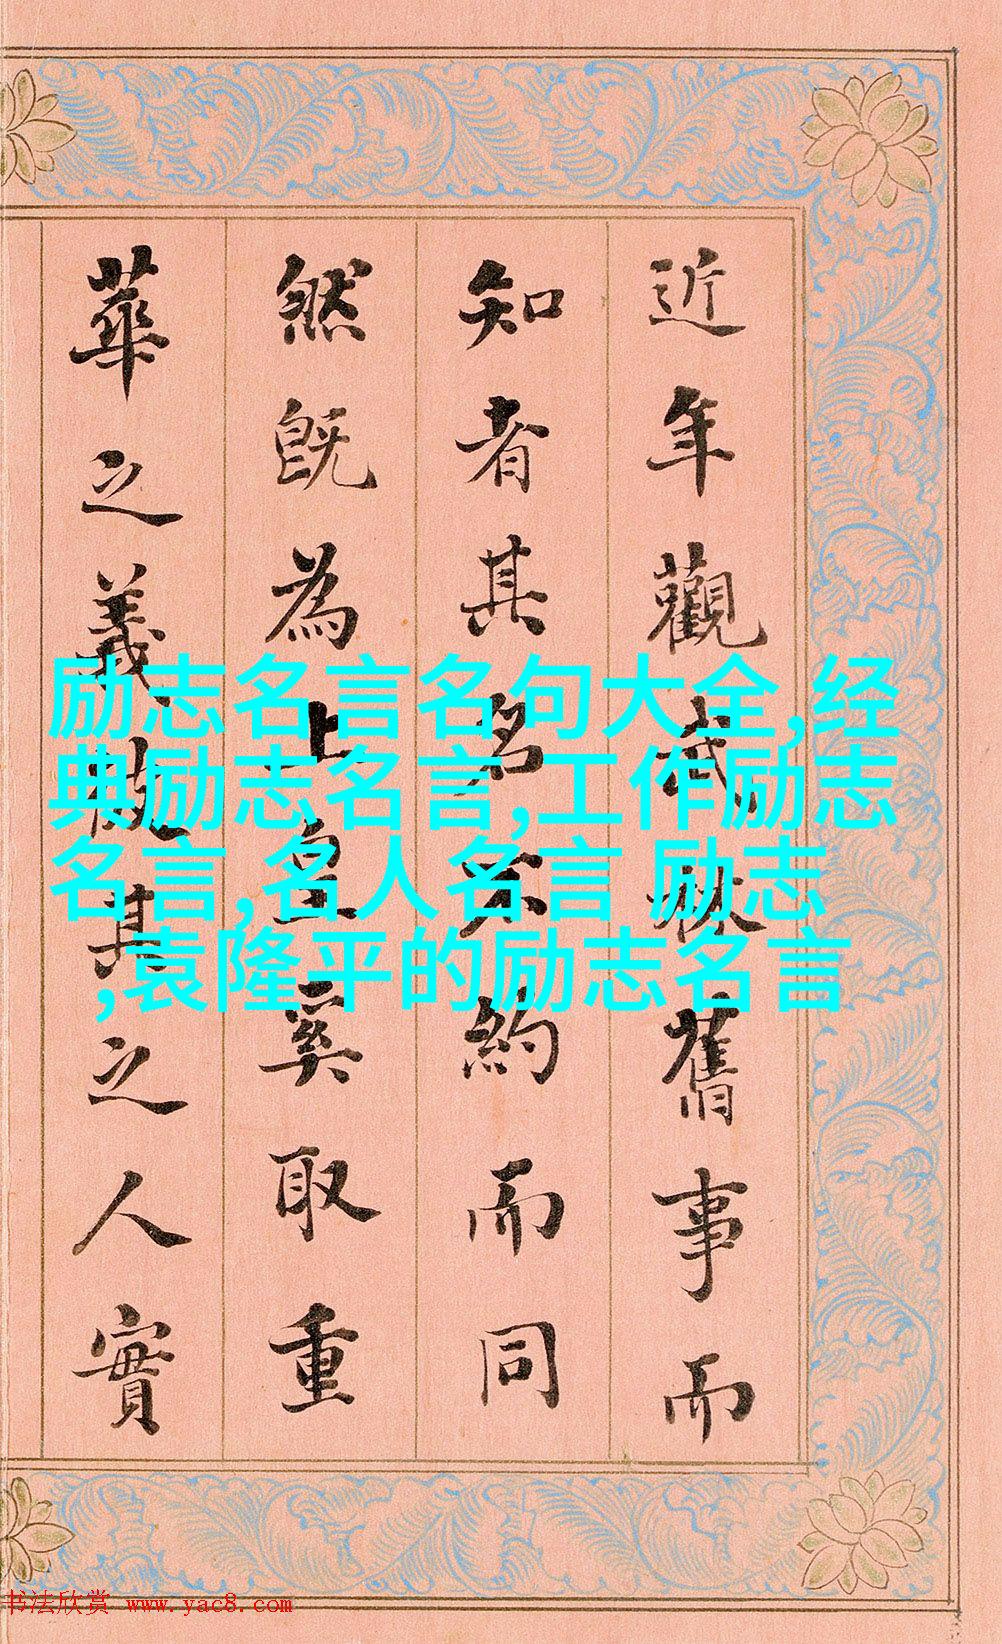 近年觀武林舊事而
知者其名不約而同
然既為上皇奚取重
華之義故其之人實
励志名言名句大全,经
典励志名言,工作励志
名言,名人名言 励志
,袁隆平的励志名言
书法欣赏 www.yac8.com